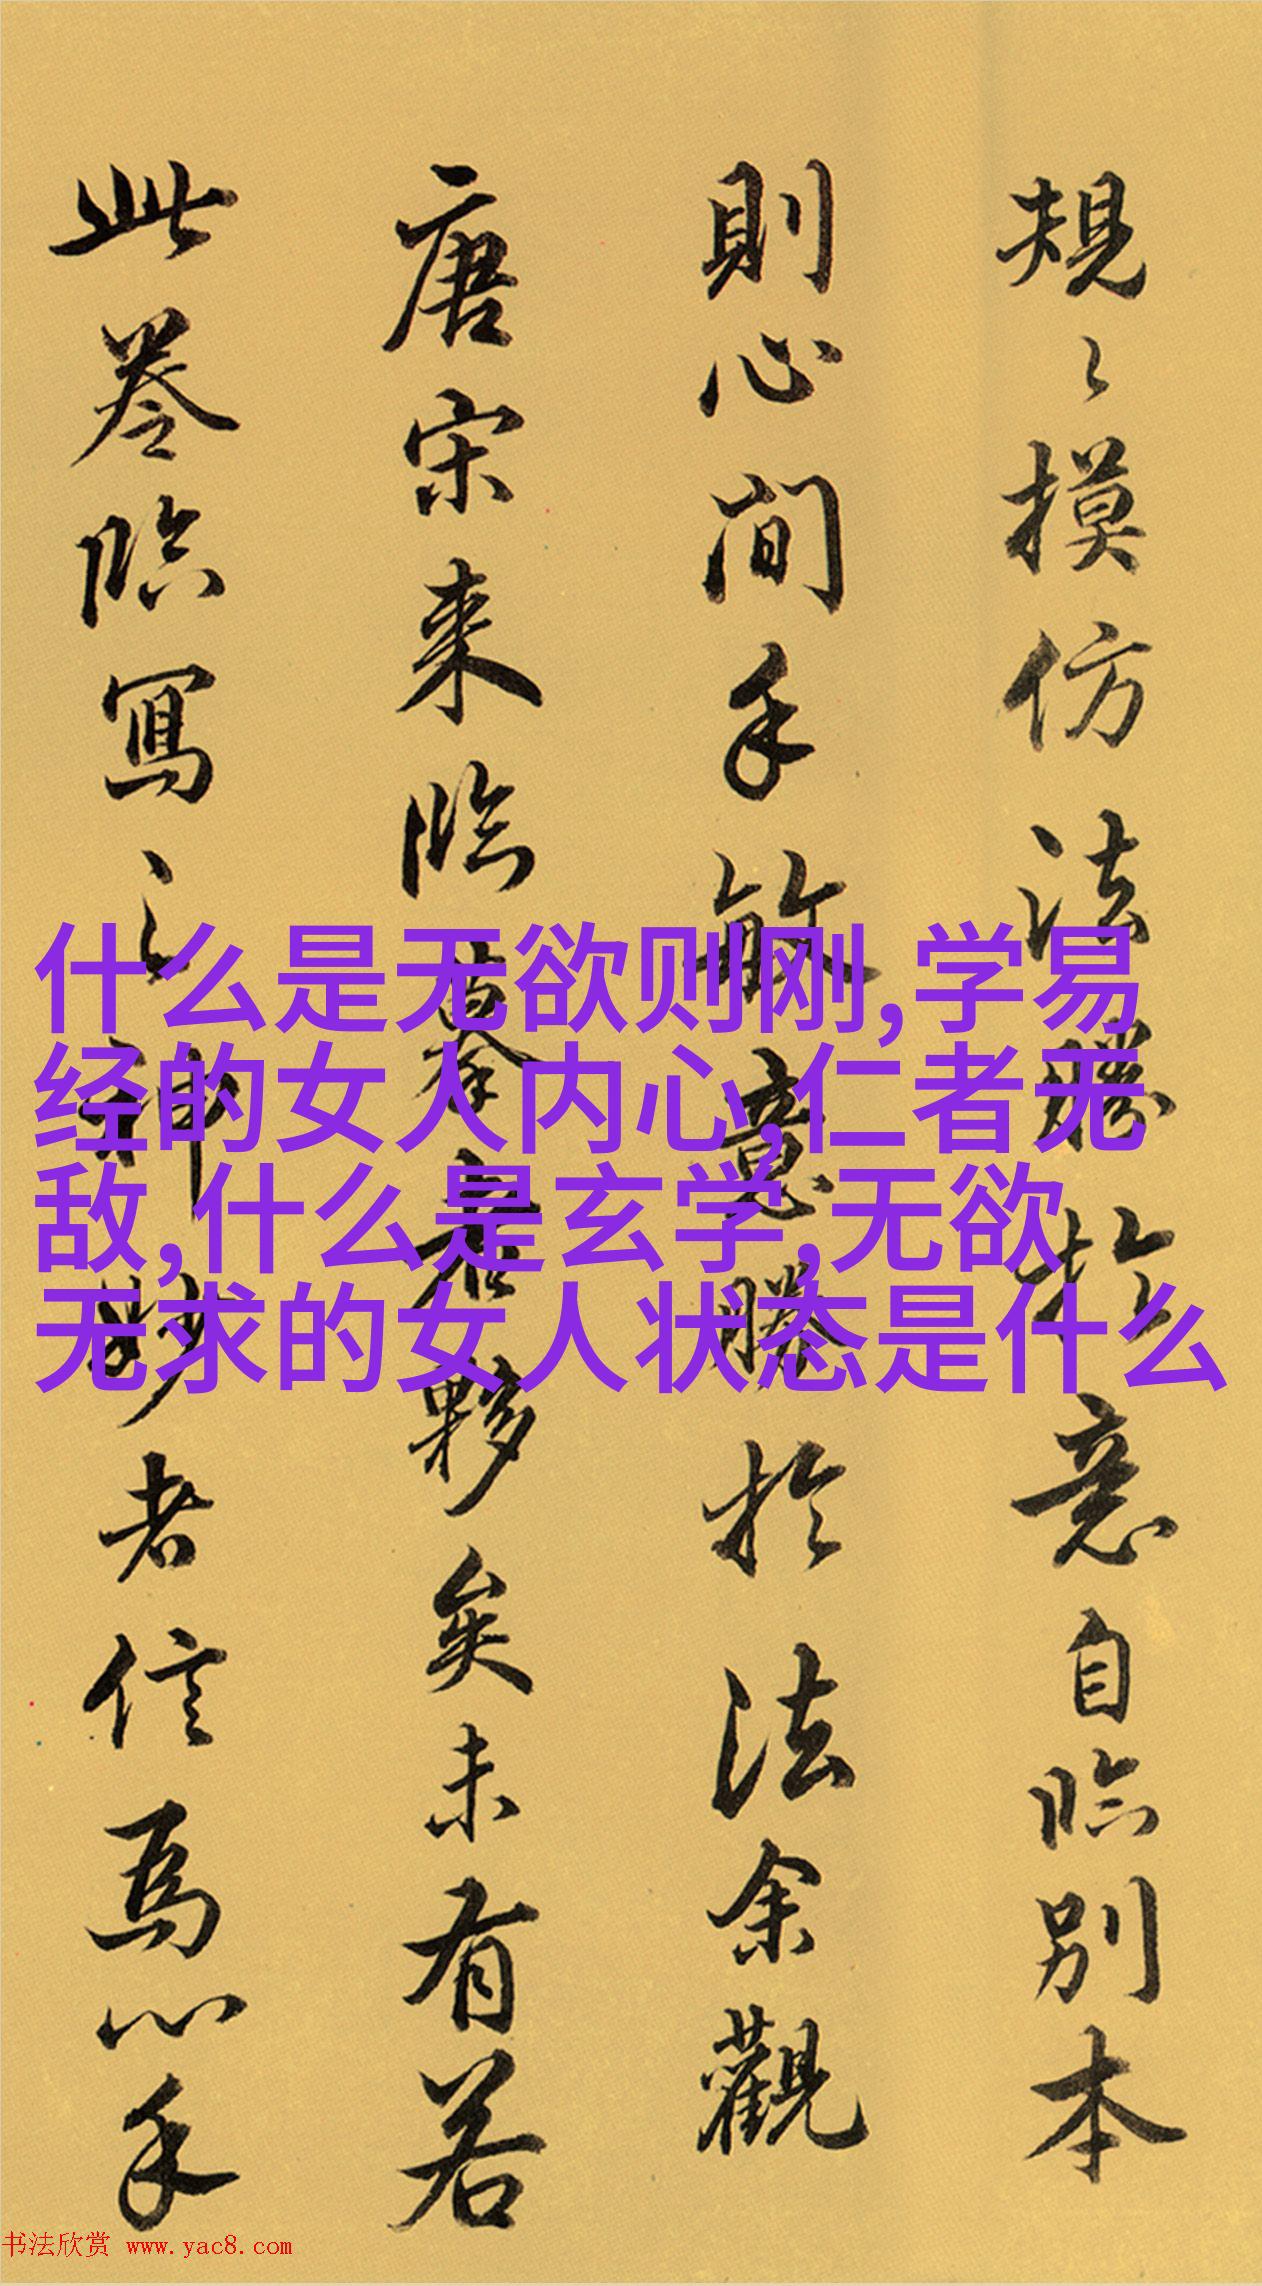 規〻摸仿法勝於意自臨別本
則心閒手敏意勝於法余觀
唐宋来臨摹者夥矣未有若
此卷臨寫之神妙者信焉心手
什么是无欲则刚,学易
经的女人内心,仁者无
敌,什么是玄学,无欲
无求的女人状态是什么
书法欣赏 www.yac8.com